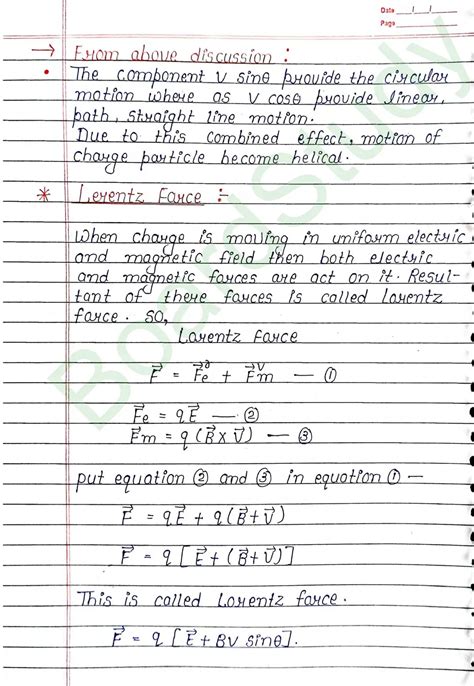 Date __/__/__
Page ______
→ From above discussion :
• The component V sinθ provide the circular
motion where as V cosθ provide linear,
path, straight line motion.
Due to this combined effect, motion of
charge particle become helical.
* Lerentz Force :-
When charge is moving in uniform electric
and magnetic field then both electric
and magnetic forces are act on it. Resul-
tant of there forces is called Lorentz
force. SO,
Lorentz force
F⃗ = F⃗e + F⃗m — ①
F⃗e = qE⃗ — ②
F⃗m = q (B⃗ × V⃗) — ③
put equation ② and ③ in equation ① —
F⃗ = qE⃗ + q (B⃗+V⃗)
F⃗ = q [E⃗ + (B⃗+V⃗)]
This is called Lorentz force.
F⃗ = q [E⃗ + BV sinθ].
BoardStudy